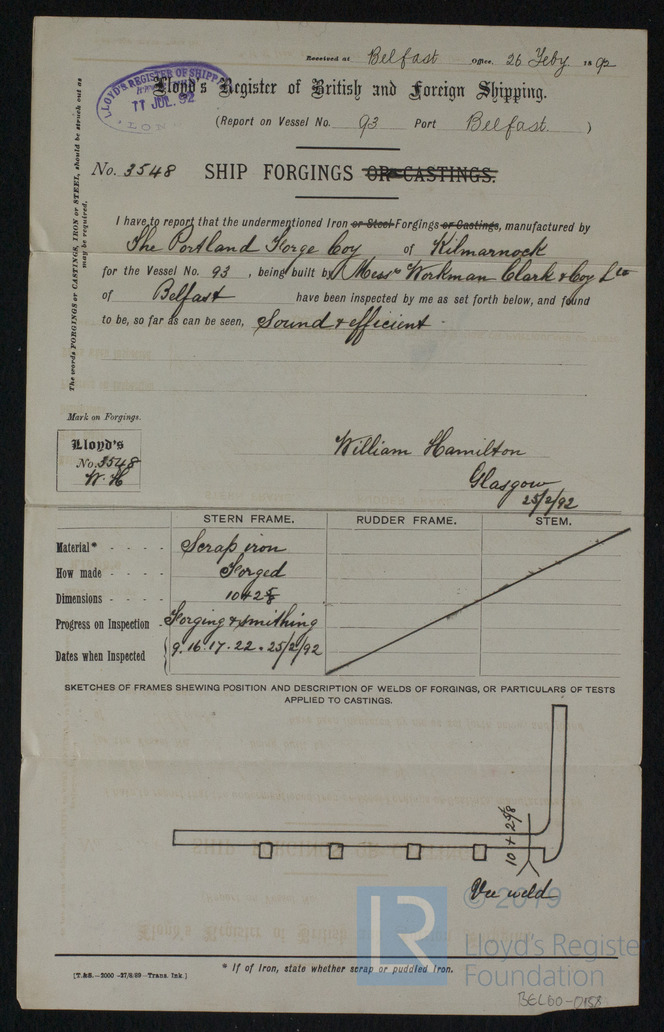 Received at Belfast Office, 26 Feby 1892
LLOYD'S REGISTER OF SHIPPING
11 JUL. 92
LON
Lloyd's Register of British and Foreign Shipping.
(Report on Vessel No. 93 Port Belfast. )
No. 3548 SHIP FORGINGS OR CASTINGS.
The words FORGINGS or CASTINGS, IRON or STEEL, should be struck out as may be required.
I have to report that the undermentioned Iron or Steel Forgings or Castings, manufactured by
The Portland Forge Coy of Kilmarnock
for the Vessel No. 93 , being built by Messrs Workman Clark & Coy Ltd
of Belfast have been inspected by me as set forth below, and found
to be, so far as can be seen, Sound & efficient -
Mark on Forgings.
Lloyd's
No. 3548
W. H
William Hamilton
Glasgow
25/2/92
STERN FRAME. RUDDER FRAME. STEM.
Material* - - - - Scrap iron
How made - - - - Forged
Dimensions - - - - 10+2⅝
Progress on Inspection - Forging & smithing
Dates when Inspected 9. 16. 17. 22. 25/2/92
SKETCHES OF FRAMES SHEWING POSITION AND DESCRIPTION OF WELDS OF FORGINGS, OR PARTICULARS OF TESTS
APPLIED TO CASTINGS.
10 + 2⅝
Vee weld
© 2019
LR
Lloyd's Register
Foundation
* If of Iron, state whether scrap or puddled Iron.
[T.&S.—3000 —27/8/89—Trans. Ink.]
BEL60-0158